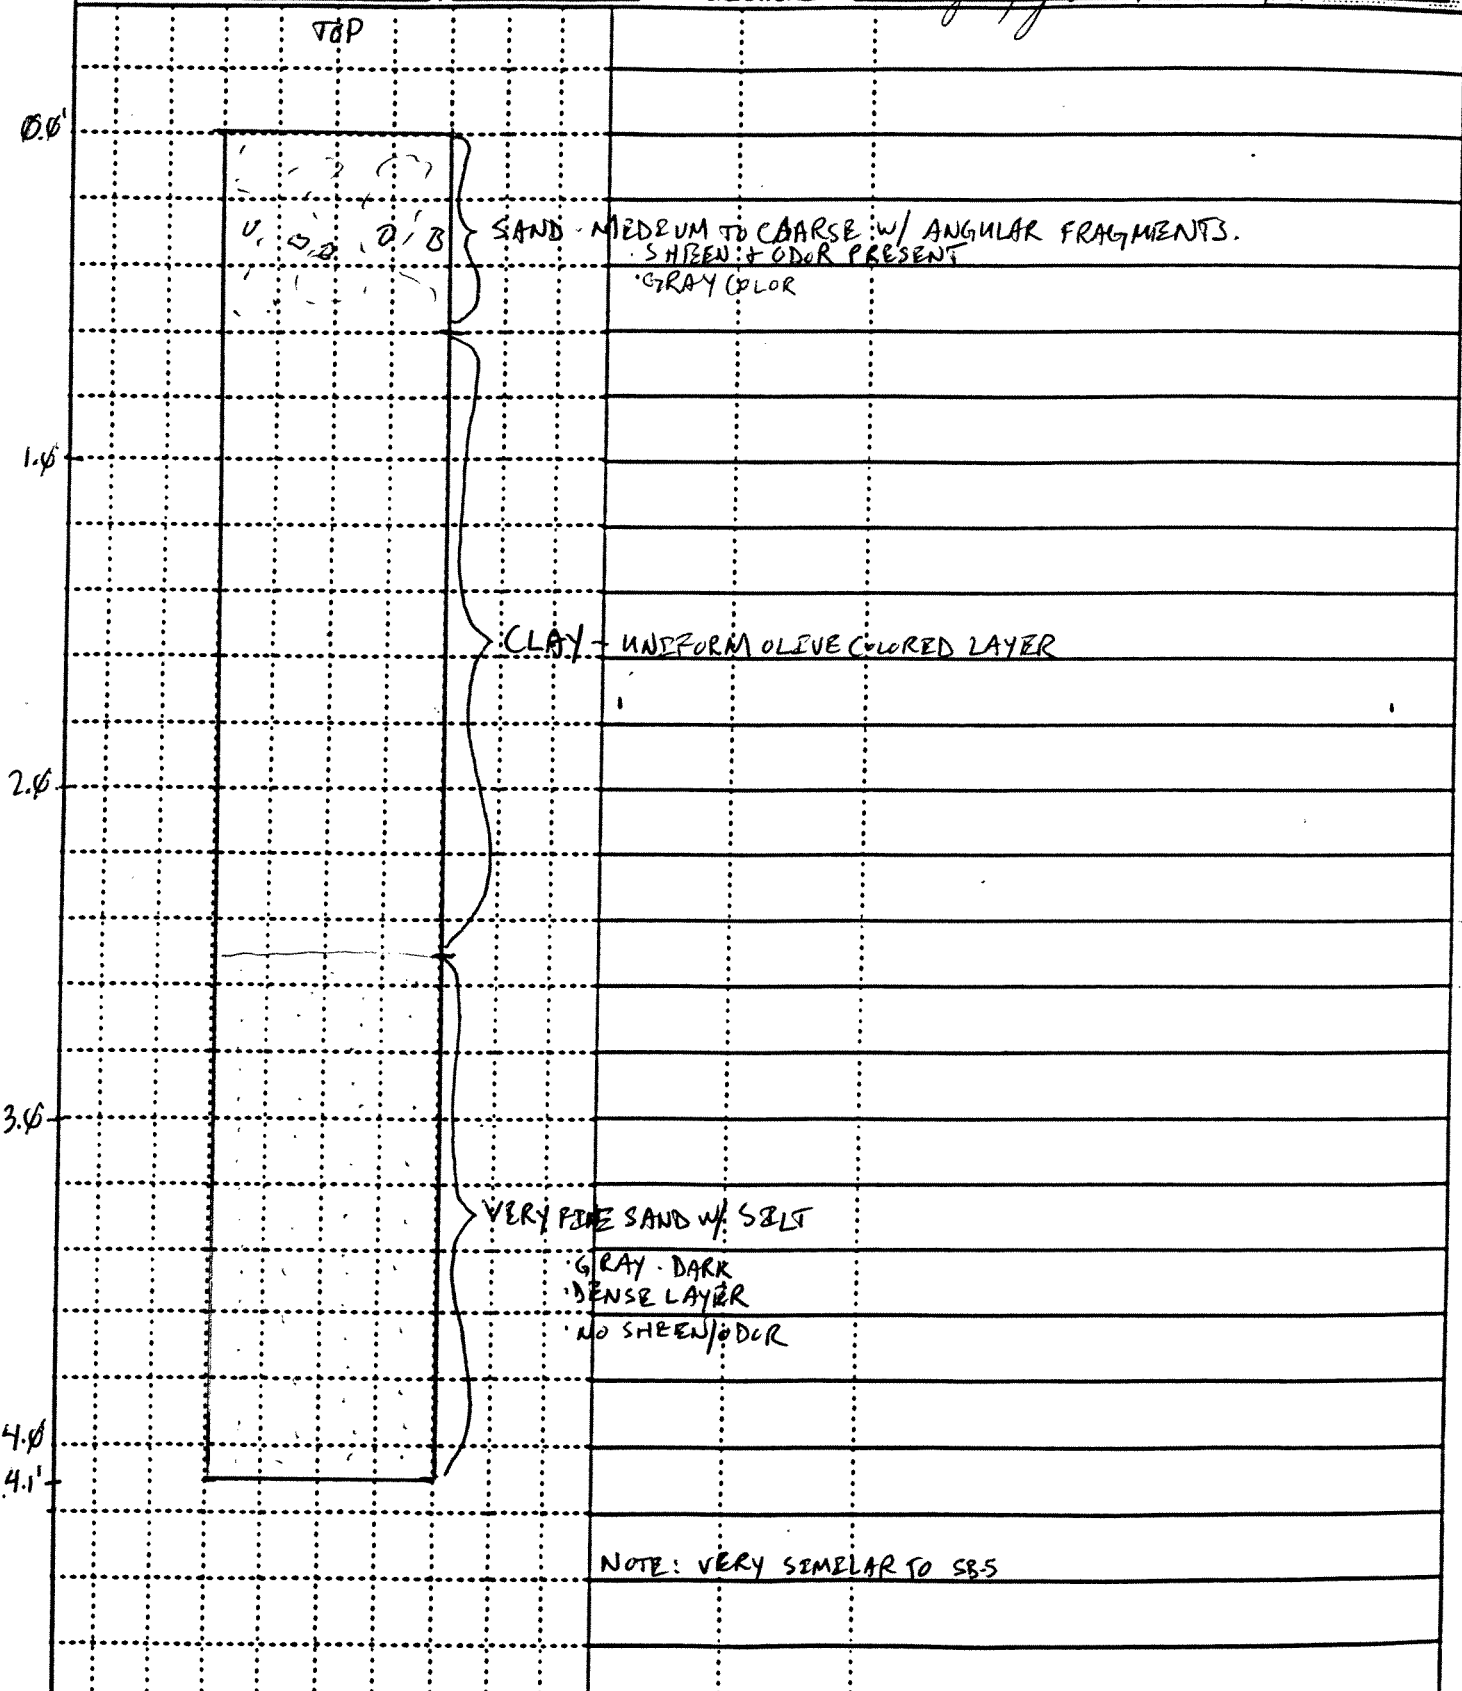 TOP
0.0'
SAND · MEDIUM TO COARSE W/ ANGULAR FRAGMENTS.
· SHEEN & ODOR PRESENT
· GRAY COLOR
1.0
CLAY - UNIFORM OLIVE COLORED LAYER
2.0
3.0
VERY FINE SAND W/ SILT
· GRAY · DARK
· DENSE LAYER
· NO SHEEN/ODOR
4.0
4.1'
NOTE: VERY SIMILAR TO SB-5